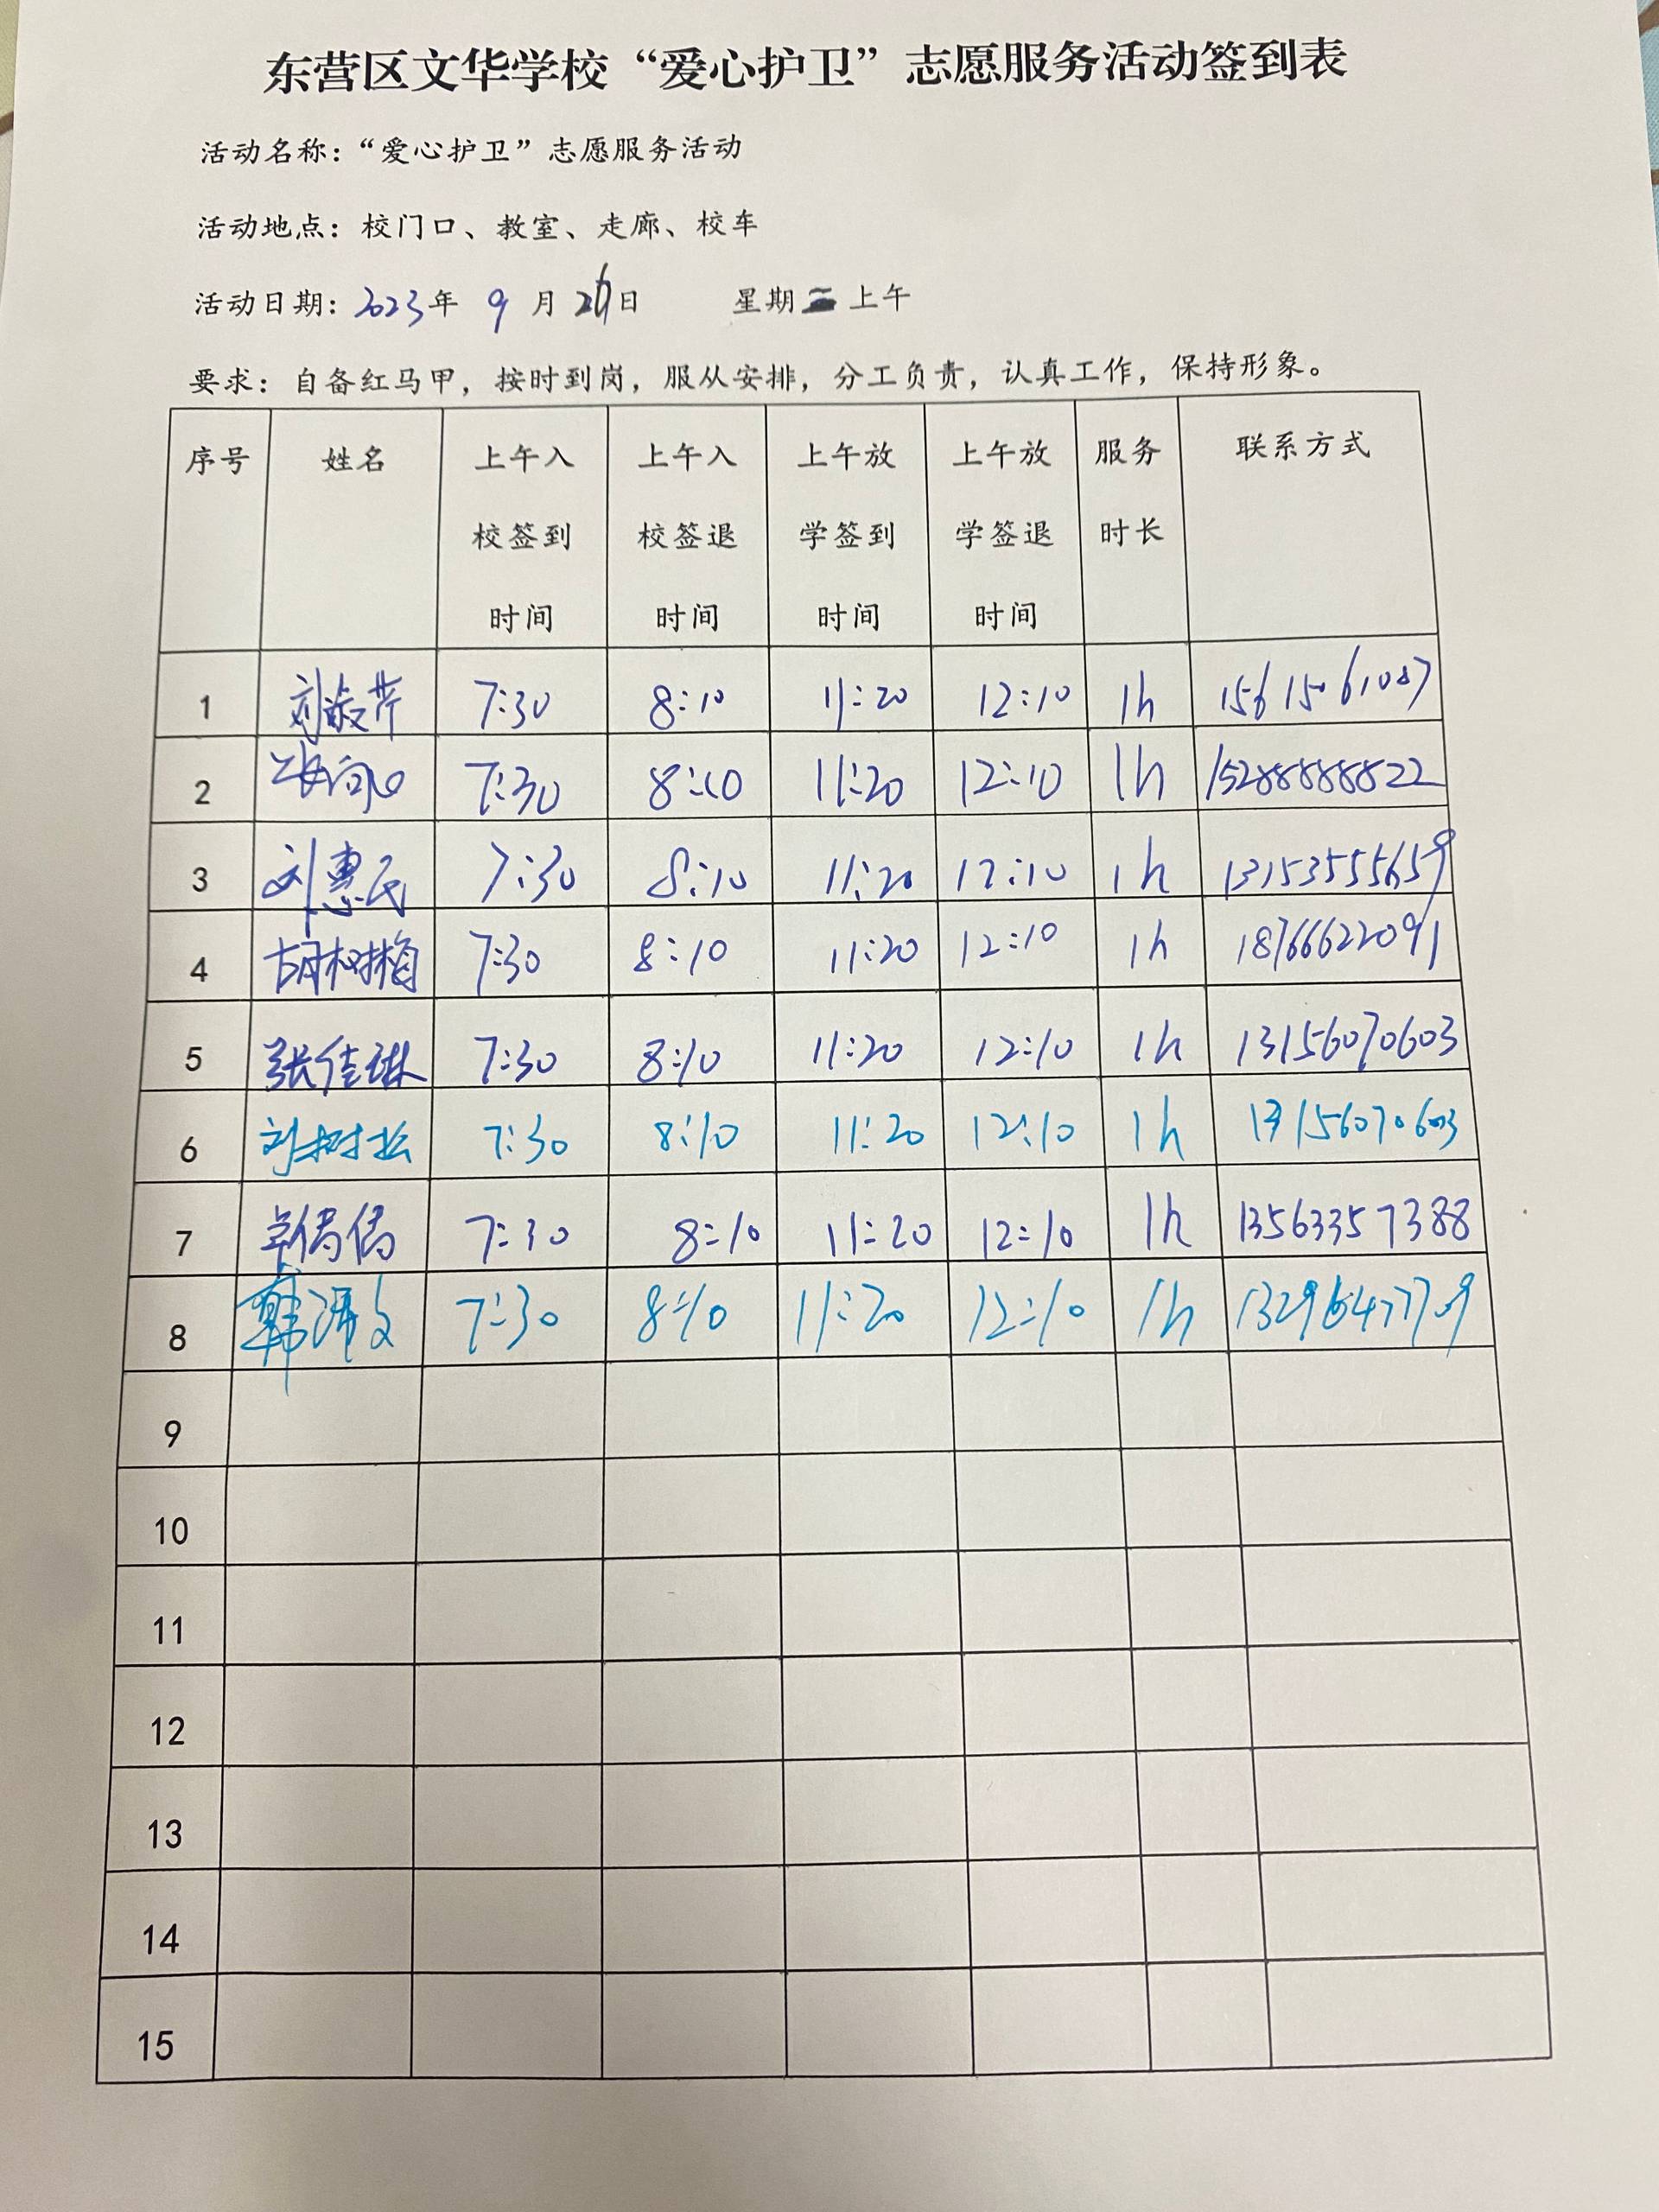 东营区文华学校“爱心护卫”志愿服务活动签到表
活动名称：“爱心护卫”志愿服务活动
活动地点：校门口、教室、走廊、校车
活动日期：2023年 9 月 26日 星期二 上午
要求：自备红马甲，按时到岗，服从安排，分工负责，认真工作，保持形象。
序号 姓名 上午入校签到时间 上午入校签退时间 上午放学签到时间 上午放学签退时间 服务时长 联系方式
1 刘淑芹 7:30 8:10 11:20 12:10 1h 15615061087
2 7:30 8:10 11:20 12:10 1h 15288888822
3 刘惠民 7:30 8:10 11:20 12:10 1h 13153555659
4 胡树梅 7:30 8:10 11:20 12:10 1h 18766622091
5 张佳琳 7:30 8:10 11:20 12:10 1h 13156070603
6 刘树松 7:30 8:10 11:20 12:10 1h 13156070603
7 7:30 8:10 11:20 12:10 1h 13563357388
8 7:30 8:10 11:20 12:10 1h
9
10
11
12
13
14
15